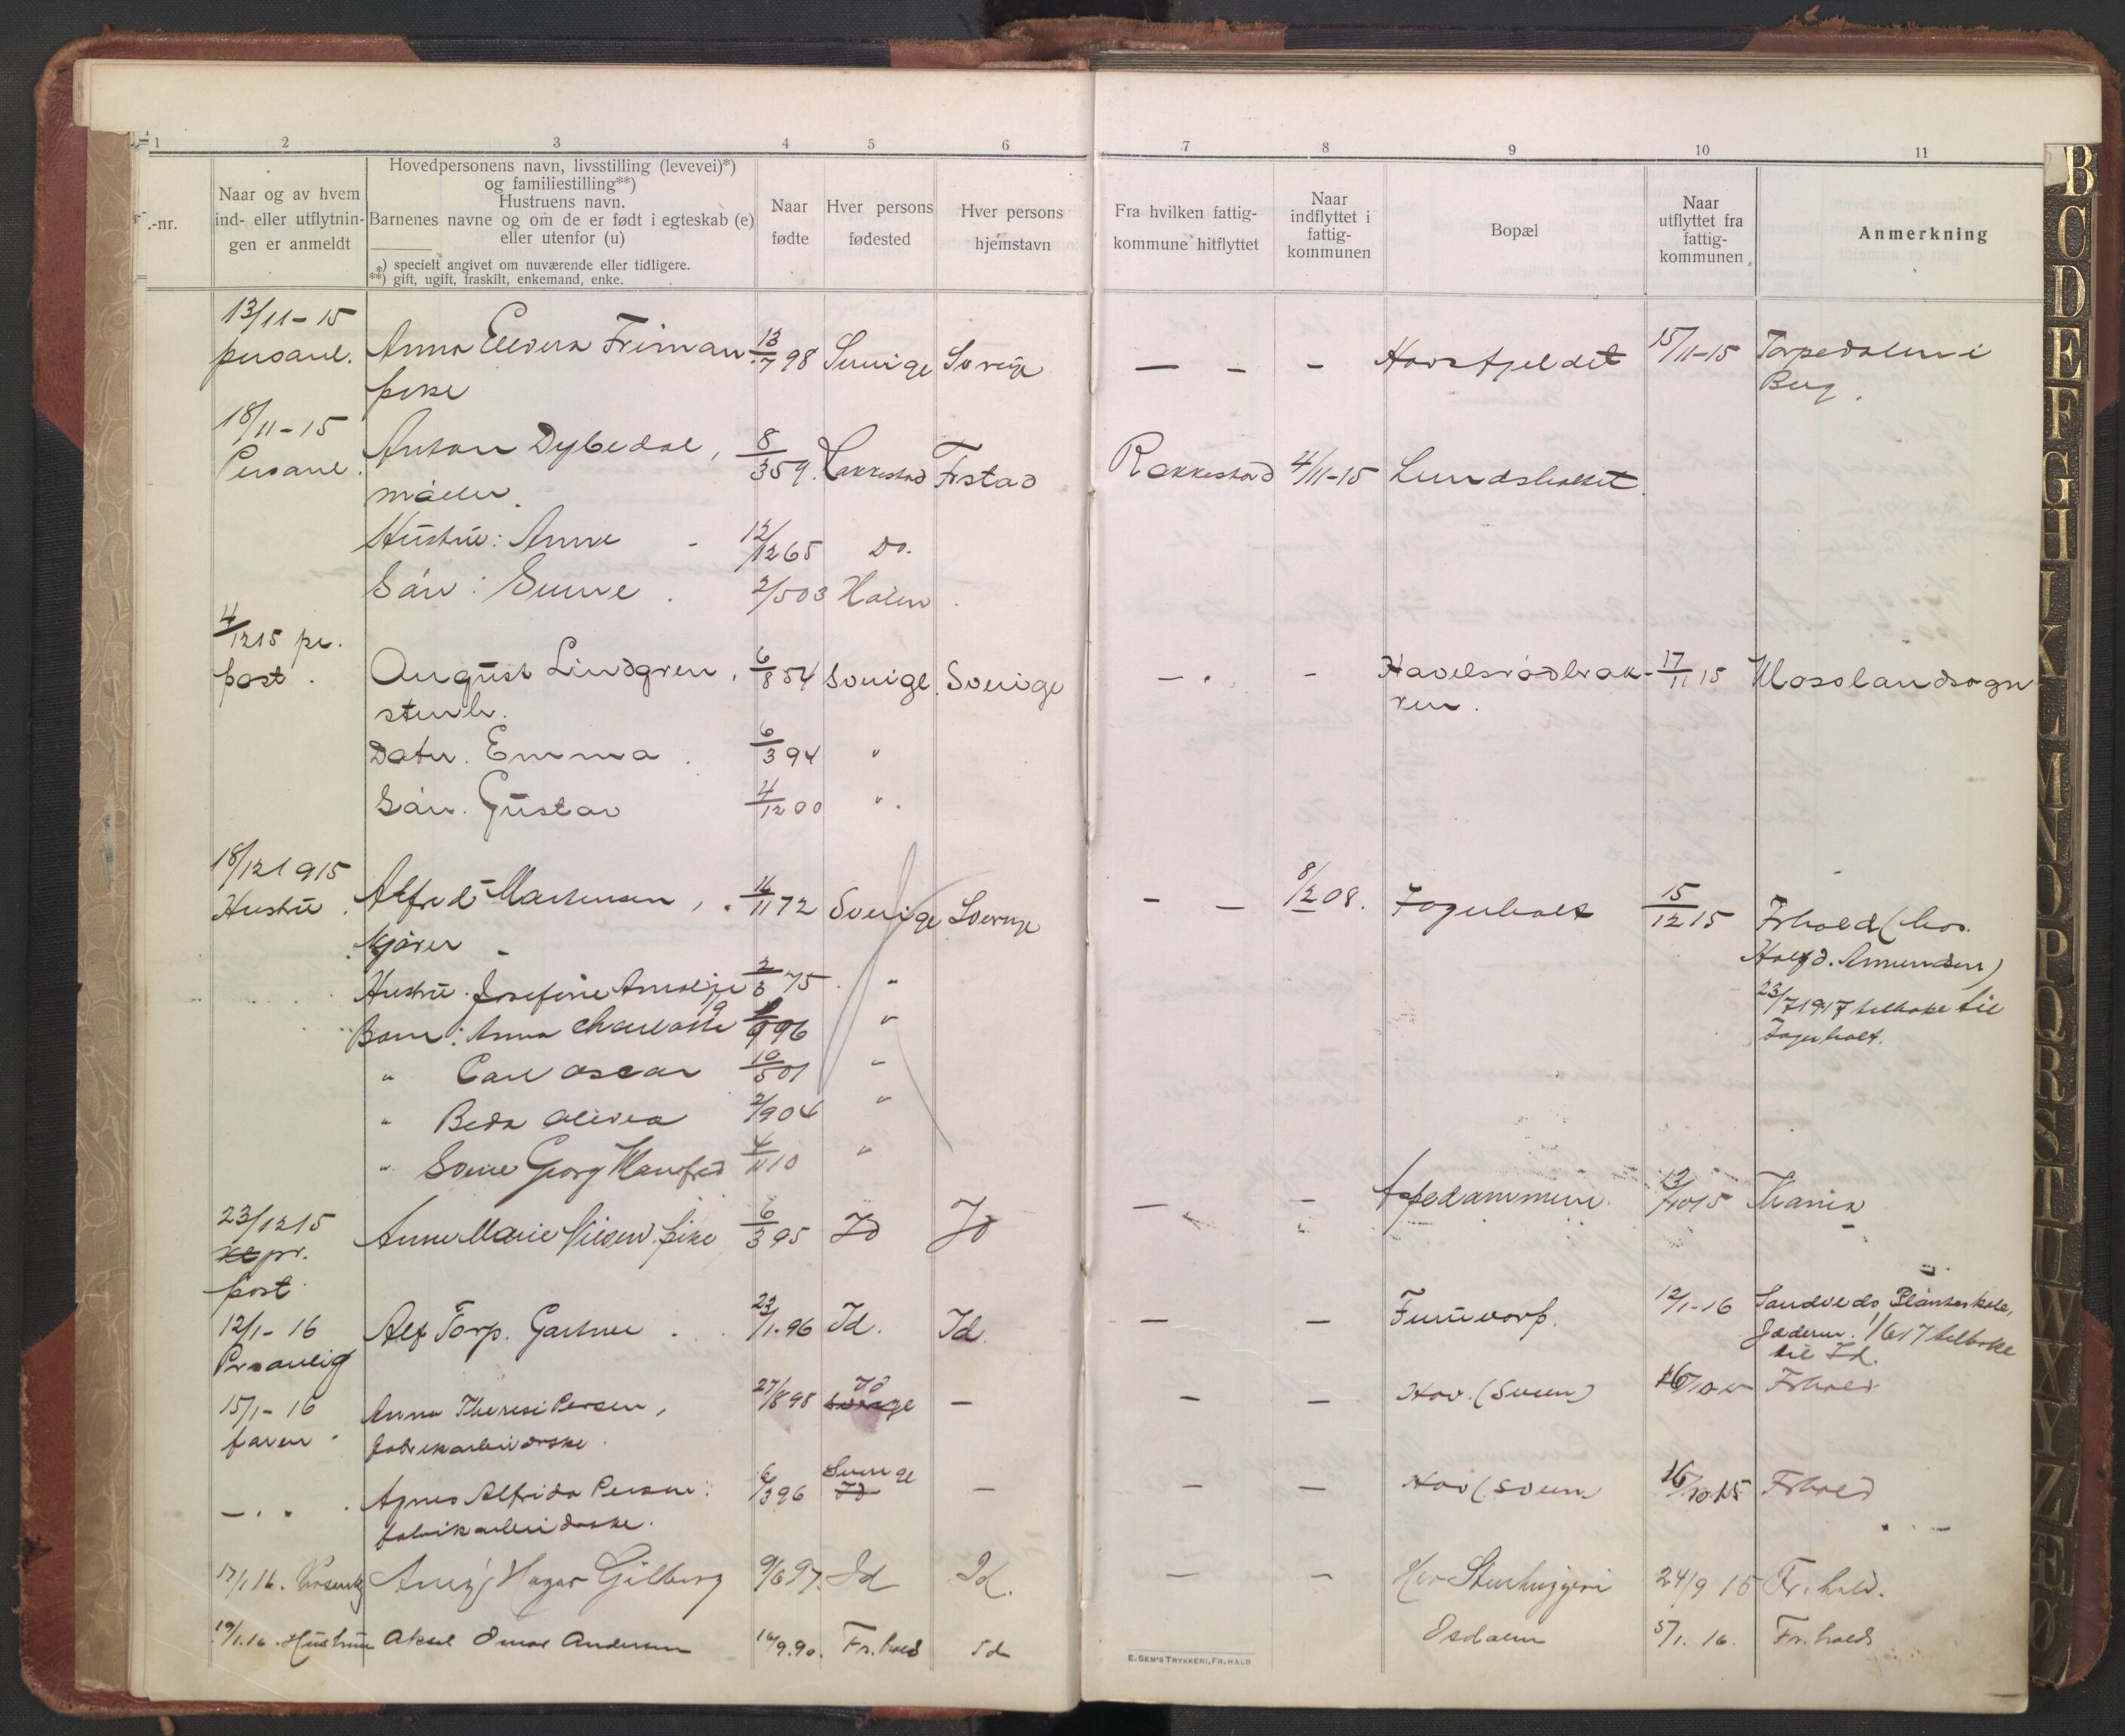 1 2 3 4 5 6 7 8 9 10 11
.-nr.
Naar og av hvem
ind- eller utflytnin-
gen er anmeldt
Hovedpersonens navn, livsstilling (levevei)*)
og familiestilling**)
Hustruens navn.
Barnenes navne og om de er født i egteskab (e)
eller utenfor (u)
*) specielt angivet om nuværende eller tidligere.
**) gift, ugift, fraskilt, enkemand, enke.
Naar
fødte
Hver persons
fødested
Hver persons
hjemstavn
Fra hvilken fattig-
kommune hitflyttet
Naar
indflyttet i
fattig-
kommunen
Bopæl
Naar
utflyttet fra
fattig-
kommunen
Anmerkning
13/11-15
Anna Elvira Friman 13/7 98 Sverige Sverige — - - Hovsfjeldet 15/11-15 Torpedalen i
Berg.
pike
18/11-15
Anton Dybedal, 8/3 59. Rakkestad Frstad Rakkestad 4/11-15 Lundsholtet
maler.
Hustru: Anne - 12/12 65 Do.
Sön: Sunne. 2/5 03 Halen
4/12 15 pr.
post. August Lindgren, 6/8 54 Sverige. Sverige - . - Havelsrødbrak- 17/11 15 Mosslandsogn
stenh. ken.
Dater. Emma. 6/3 94 "
Sön. Gustav 4/12 00 ".
18/12 1915
Hustru. Alfred Martensen, 16/11 72 Sverige Sverige - - 8/2 08. Fagerholt 15/12 15 Frhald (hos.
Kjörer - Halfd. Amundsen)
Hustru. Josefine Amalie 2/3 75 "
23/7 1917 tilbake til
Barn: Anna Charlotte 96 "
Fagerholt.
" Carl Oscar 10/5 01 "
" Beda Olivia 2/9 04 "
" Sven Georg Manfred 4/11 10 "
23/12 15 Anne Marie Nilsen pike 6/3 95 Id Id — - Aspedammen 15 Krania
pr.
post.
12/1-16 Alf Torp. Gartner. 23/1.96 Id. Id. — — Furuvorp. 12/1-16 Sandveds Planteskole,
Personlig Jæderen. 1/6 17 tilbake
til Id.
15/1-16 Anna Theresi Persen, 27/8 98 Sverige Id — - — Hov. (Sven) 16/10 15 Frhald
faren. fabrikarbeiderske.
—. " Agnes Alfrida Persen: 6/3 96 Id Sverige — — — Hov (Sven) 16/10 15 Frhald
fabrikarbeiderske.
17/1 16. Hagar Gilberg 9/6 97. Id Id. — - Hov Stenhuggeri 24/9 15 Fr.hald.
19/1.16. Hustru Aksel Omar Andersen 16/9.90. Fr.hald Id Osdalen 5/1. 16. Fr.hald
E. SEM'S TRYKKERI, FR.HALD
B
C
D
E
F
G
H
I
K
L
M
N
O
P
Q
R
S
T
U
V
W
X
Y
Z
Æ
Ø